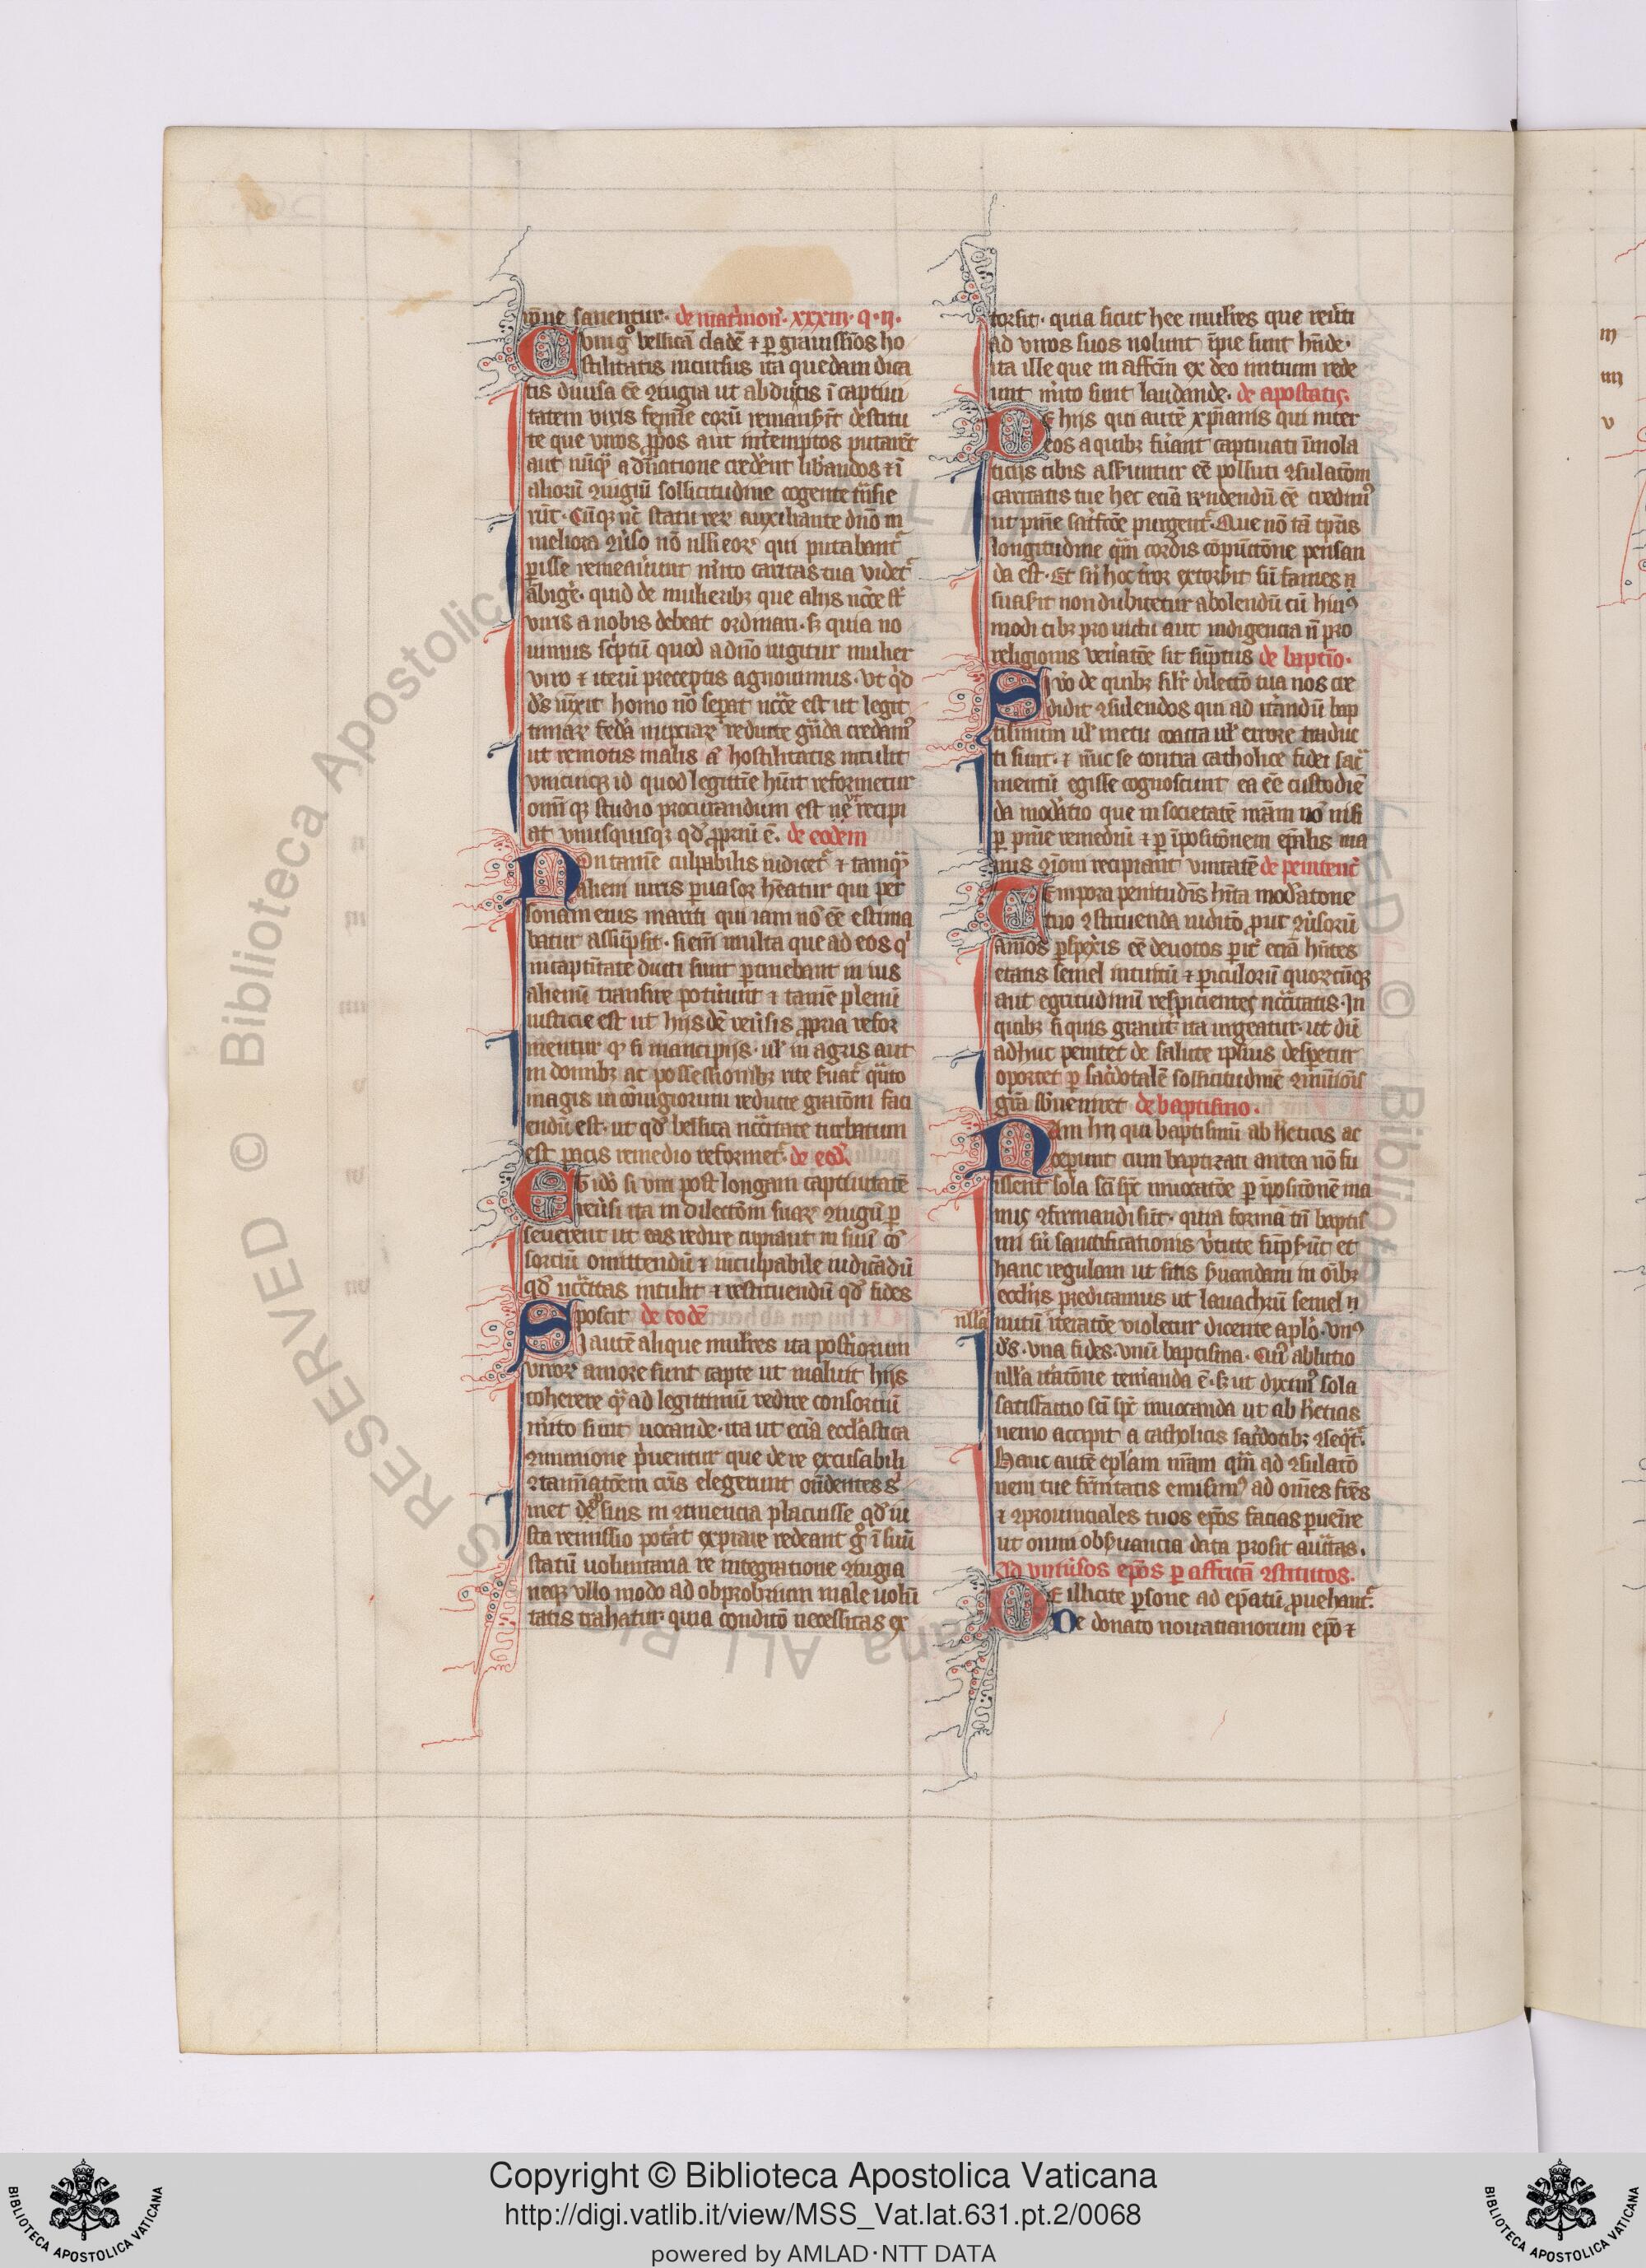 r͠one sanentur. de mat͛moñ. xxxiii. q. ii.
Cum g͛ bellicā cladē ⁊ ꝑ grauissīos ho
stilitatis incursus ita quedam dica
tis diuisa eē ꝯiugia ut abductis ī captiui
tatem viris femīe eorū remanserīt destitu
te que viros ꝓprios aut inťemptos putarēt
aut nūqͣ a dn̄atione crederent liberandos ⁊ ī
aliorū ꝯiugiū sollicitudine cogente trāsie
rūt. Cūqꝫ nc̄ statu reꝝ auxiliante dn̄o in
meliora ꝯuerso nō nulli eoꝝ qui putabant͛
ꝑisse remeauerunt merito caritas tua videt͛
ābigere. quid de mulieribꝫ que aliis iūcte st̄
viris a nobis debeat ordinari. sꝫ quia no
uimus sc̄ptū quod a dn̄o iūgitur mulier
viro ⁊ iterū preceptis agnouimus. vt qd̓
ds̄ iūxit homo nō seperat necc̄e est ut legit
timaꝝ federa nuptiaꝝ redinte gnͣda credamꝰ
ut remotis malis q̄ hostilitatis intulit
vnicuiqꝫ id quod legittīe habuit reformetur
omī qꝫ studio procurandum est ut recipi
at vnusquisqꝫ qd̓ ꝓprium ē. de eodem
Non tamē culpabilis iudicet͛ ⁊ tamqͣ
alieni iuris ꝑuasor habeatur qui per
sonam eius mariti qui iam nō eē estima
batur assūpsit. si em̄ multa que ad eos qͥ
in captiuitate ducti sunt ꝑtinebant in ius
alienū transire potuerunt ⁊ tamē plenū
iusticie est ut hijsdē reuersis ꝓpria refor
mentur qꝫ si mancipijs. ul̓ in agris aut
in domibꝫ ac possessionibꝫ rite seruat͛ qͣnto
magis in coniugiorum redinte gratōni faci
endū est. ut qd̓ bellica necc̄itate turbatum
est pacis remedio reformet͛. de eod̓.
Et ideo si viri post longam captiuitatē
reuersi ita in dilectōm suaꝝ ꝯiugū ꝑ
seuerent ut eas redire cupiant in suū cō
sorciū omittendū ⁊ inculpabile iudicādū
qd̓ necc̄itas intulit ⁊ restituendū qd̓ fides
poscit de eodē
Si autē alique mulieres ita posteriorum
viroꝝ amore sunt capte ut malint hijs
coherere qͣ ad legittimū redire consortiū
merito sunt uocande. ita ut eciā ecclastica
ꝯmunione priuentur que de re excusabili
ꝯtaminatōem crīs elegerunt ostendentes s
met de suis in ꝯtinencia placuisse qd̓ iu
sta remissio poterat expiare redeant g͛ ī suū
statū voluntaria re integratione ꝯiugia
neqꝫ vllo modo ad obprobrium male uolū
tatis trahatur quia conditō necessitas ex
torsit. quia sicut hee mulieres que reuerti
ad viros suos nolunt īpie sunt habende.
ita ille que in affcm̄ ex deo initum rede
unt merito sunt laudande. de apostatis.
De hijs qui autē xp̄ianis qui inter
eos a quibꝫ fuerant captiuati īmola
ticijs cibis asseruntur eē polluti ꝯsulatōm
caritatis tue hec eciā rn̄dendū eē credimꝰ
ut pnīe satisfctōe purgent͛. Que nō tā tp̄ris
longitudine qm̄ cordis cōpūctōne pensan
da est. Et siue hoc terror extorsit siue fames
suaserit non dubitetur abolendū cū huiꝰ
modi cibꝫ pro metu aut indigencia nō pro
religionis veneratōe sit sūptus de baptō.
Si vero de quibꝫ silr̄ dilectō tua nos cre
didit ꝯsulendos qui ad iterandū bap
tismum ul̓ metu coacti ul̓ errore traduc
ti sunt. ⁊ nūc se contra catholice fidei sacͣ
mentū egisse cognoscunt ea eē custodiē
da moderatio que in societatē nr̄am nō nisi
ꝑ pnīe remediū ⁊ ꝑ īpositōnem ep̄alis ma
nus ꝯmoīs recipiant vnitatē de peniteñt
Tempora penitudīs habita moderatone
tuo ꝯstituenda iuditō prout ꝯuersorū
animos ꝑspexeris eē deuotos pariter eciā hn̄tes
etatis semel intuitū ⁊ periculorū quorūcūqꝫ
aut egritudinū respicientes necc̄itatis. In
quibꝫ si quis grauiter ita urgeatur. ut dū
adhuc penitet de salute ipsius desperetur
oportet ꝑ sacerdotalē sollicitudinē ꝯmunionis
grā subuenuet de baptismo.
Nam hij qui baptismū ab hereticis ac
ceperunt cum baptizati antea nō fu
issent sola sc̄i spc̄ inuocatōe ꝑ īpositionē ma
nus ꝯfirmandi sūt. quia forma tū baptis
mi sū sanctificationis v̓tute sūpserūt et
hanc regulam ut scitis seruandam in oībꝫ
ecclijs predicamus ut lauachrū semel ij
nulla
nitiū iteratōe violetur dicente aplo. vnꝰ
ds̄. vna fides. vnū baptisma. Cuꝰ ablutio
nulla iteratōne temeranda ē. sꝫ ut diximꝰ sola
sanctificatio sc̄i spc̄ inuocanda ut ab hereticis
nemo accipit a catholicis sacerdotibꝫ ꝯseqͣtͬ.
Hanc autē eplam nr̄am qm̄ ad ꝯsulatō
nem tue fr̄nitatis emisimꝰ ad omēs fres
⁊ ꝯprouinciales tuos ep̄os facias ꝑuenire
ut omni obseruancia data prosit auctͣtas.
Ad vniuersos ep̄os ꝑ affricā ꝯstitutos.
De illicite ꝑsone ad ep̄atū ꝓuehant͛.
De donato nouatianorum ep̄o ⁊
m
iii
v
Copyright © Biblioteca Apostolica Vaticana
http://digi.vatlib.it/view/MSS_Vat.lat.631.pt.2/0068
powered by AMLAD·NTT DATA
BIBLIOTECA APOSTOLICA VATICANA
BIBLIOTECA APOSTOLICA VATICANA